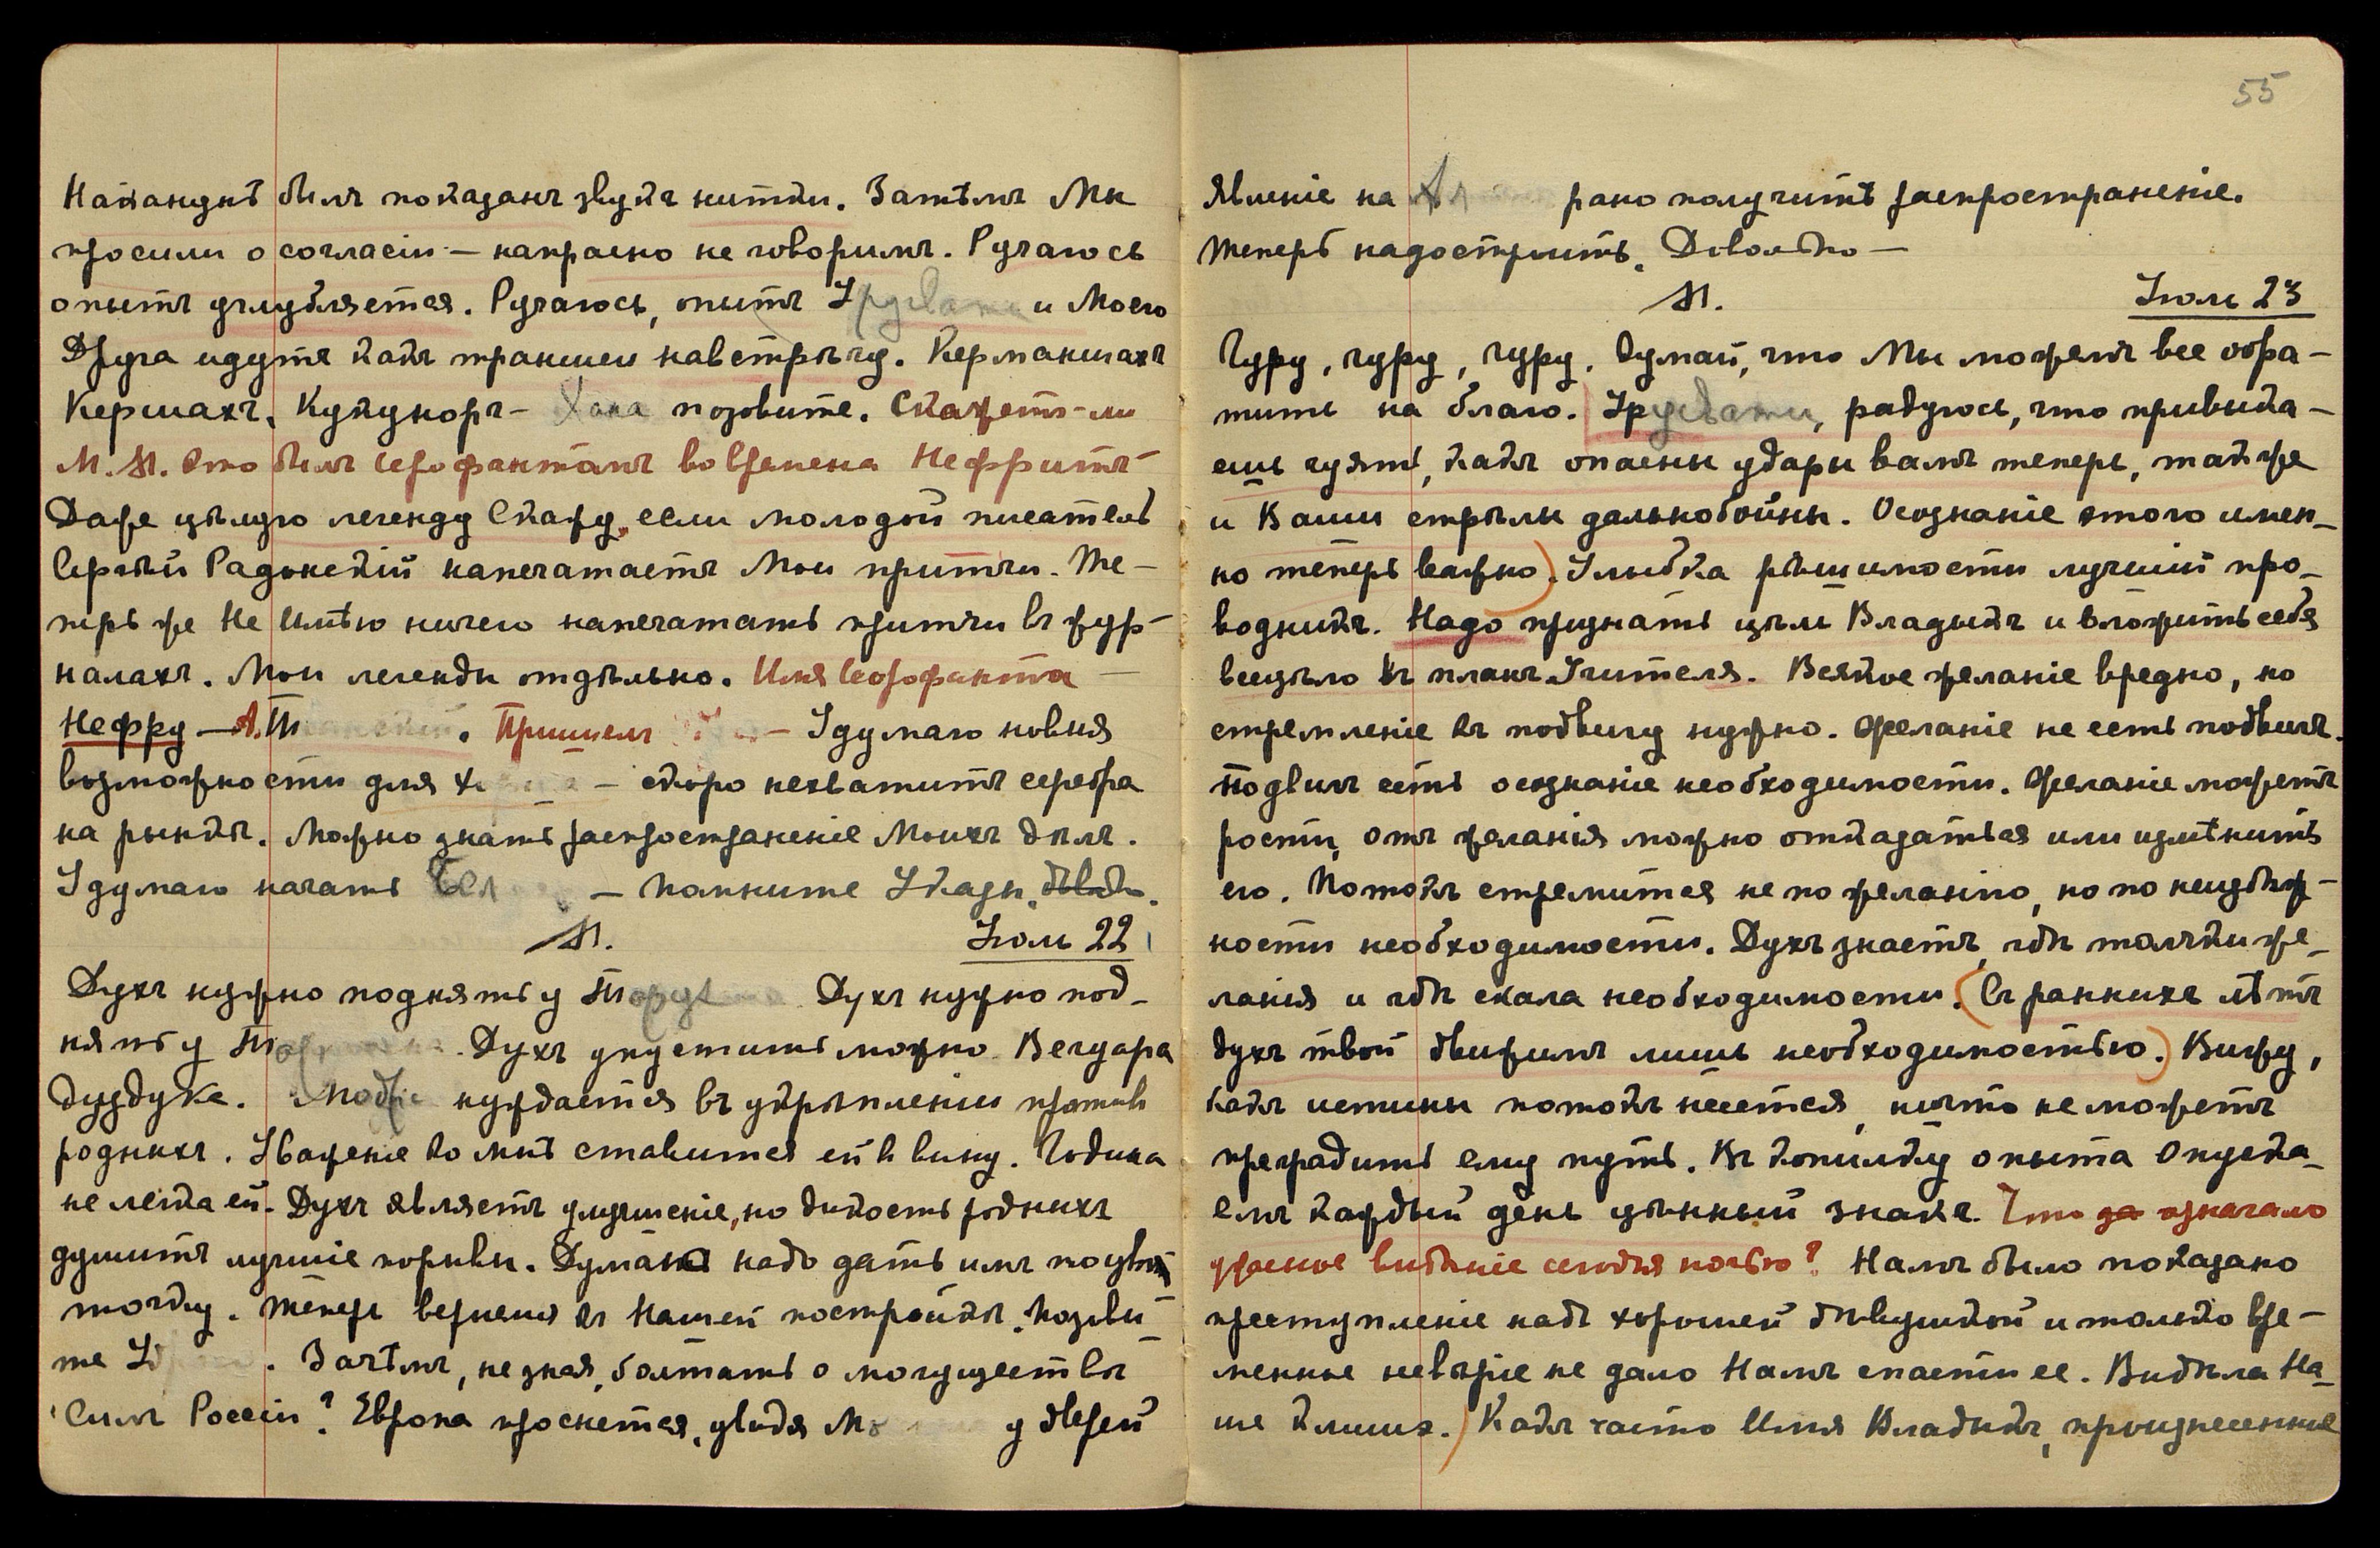 Наканунѣ былъ показанъ звукъ нитки. Затѣмъ Мы
просили о согласіи — напрасно не говоримъ. Ручаюсь
опытъ углубляется. Ручаюсь, опытъ Урусвати и Моего
Друга идутъ какъ траншеи навстрѣчу. Керманшахъ
Кершахъ, Кукуноръ – Хана позовите. Скажетъ-ли
М. М. Это былъ Іерофантомъ во времена Неффритъ –
Даже цѣлую легенду Скажу, если молодой писатель
Сергѣй Радонскій напечатаетъ Мои притчи. Те–
перь же Не Имѣю ничего напечатать притчи въ жур–
налахъ. Мои легенды отдѣльно. Имя Іерофанта –
Нефру – А. Пришелъ – Удумаю новыя
возможности для – скоро нехватитъ серебра
на рынкѣ. Можно знать распространеніе Моихъ дѣлъ.
Удумаю начать – Помните Указы.
М. Іюль 22
Духъ нужно поднять у Духъ нужно под–
нять у Духъ упустить можно. Вечѳра
дуждуке. нуждается въ укрѣпленіи противъ
родныхъ. Уваженіе ко мнѣ ставится ей въ вину. Година
не легка ей. Духъ являетъ улучшеніе, но дикость родныхъ
душитъ лучшіе порывы. Думаю надо дать имъ
точку. Теперь вернемся къ Нашей постройкѣ. Позови–
те Зачѣмъ, не зная, болтать о могуществѣ
Силъ Россіи? Европа проснется, увидя у дверей
55
Явленіе на рано получить распространеніе.
Теперь надо стрить. Довольно —
М. Іюль 23
Гуру, гуру, гуру. Думай, что Мы можемъ все обра–
тить на благо. Урусвати, радуюсь, что привыка–
ешь чуять, какъ опасны удары вамъ теперь, также
и Ваши стрѣлы дальнобойны. Осознаніе этого имен–
но теперь важно. Улыбка рѣшимости лучшій про–
водникъ. Надо признать цѣли Владыкъ и вложить себя
всецѣло въ планъ Учителя. Всякое желаніе вредно, но
стремленіе къ подвигу нужно. Желаніе не есть подвигъ.
Подвигъ есть осознаніе необходимости. Желаніе можетъ
рости, отъ желанія можно отказаться или измѣнить
его. Потокъ стремится не по желанію, но по неизбѣж–
ности необходимости. Духъ знаетъ, гдѣ толчки же–
ланія и гдѣ скала необходимости. (Съ раннихъ лѣтъ
духъ твой движимъ лишь необходимостью.) Вижу,
какъ истины потокъ несется, ничто не можетъ
преградить ему путь. Въ копилку опыта Опуска–
емъ каждый день цѣнный знакъ. Что за означало
ужасное видѣніе сегодня ночью? Намъ было показано
преступленіе надъ хорошей дѣвушкой и только вре–
менное невѣріе не дало Намъ спасти ее. Видѣла На–
ше клише.) Какъ часто Имя Владыкъ, произнесенное